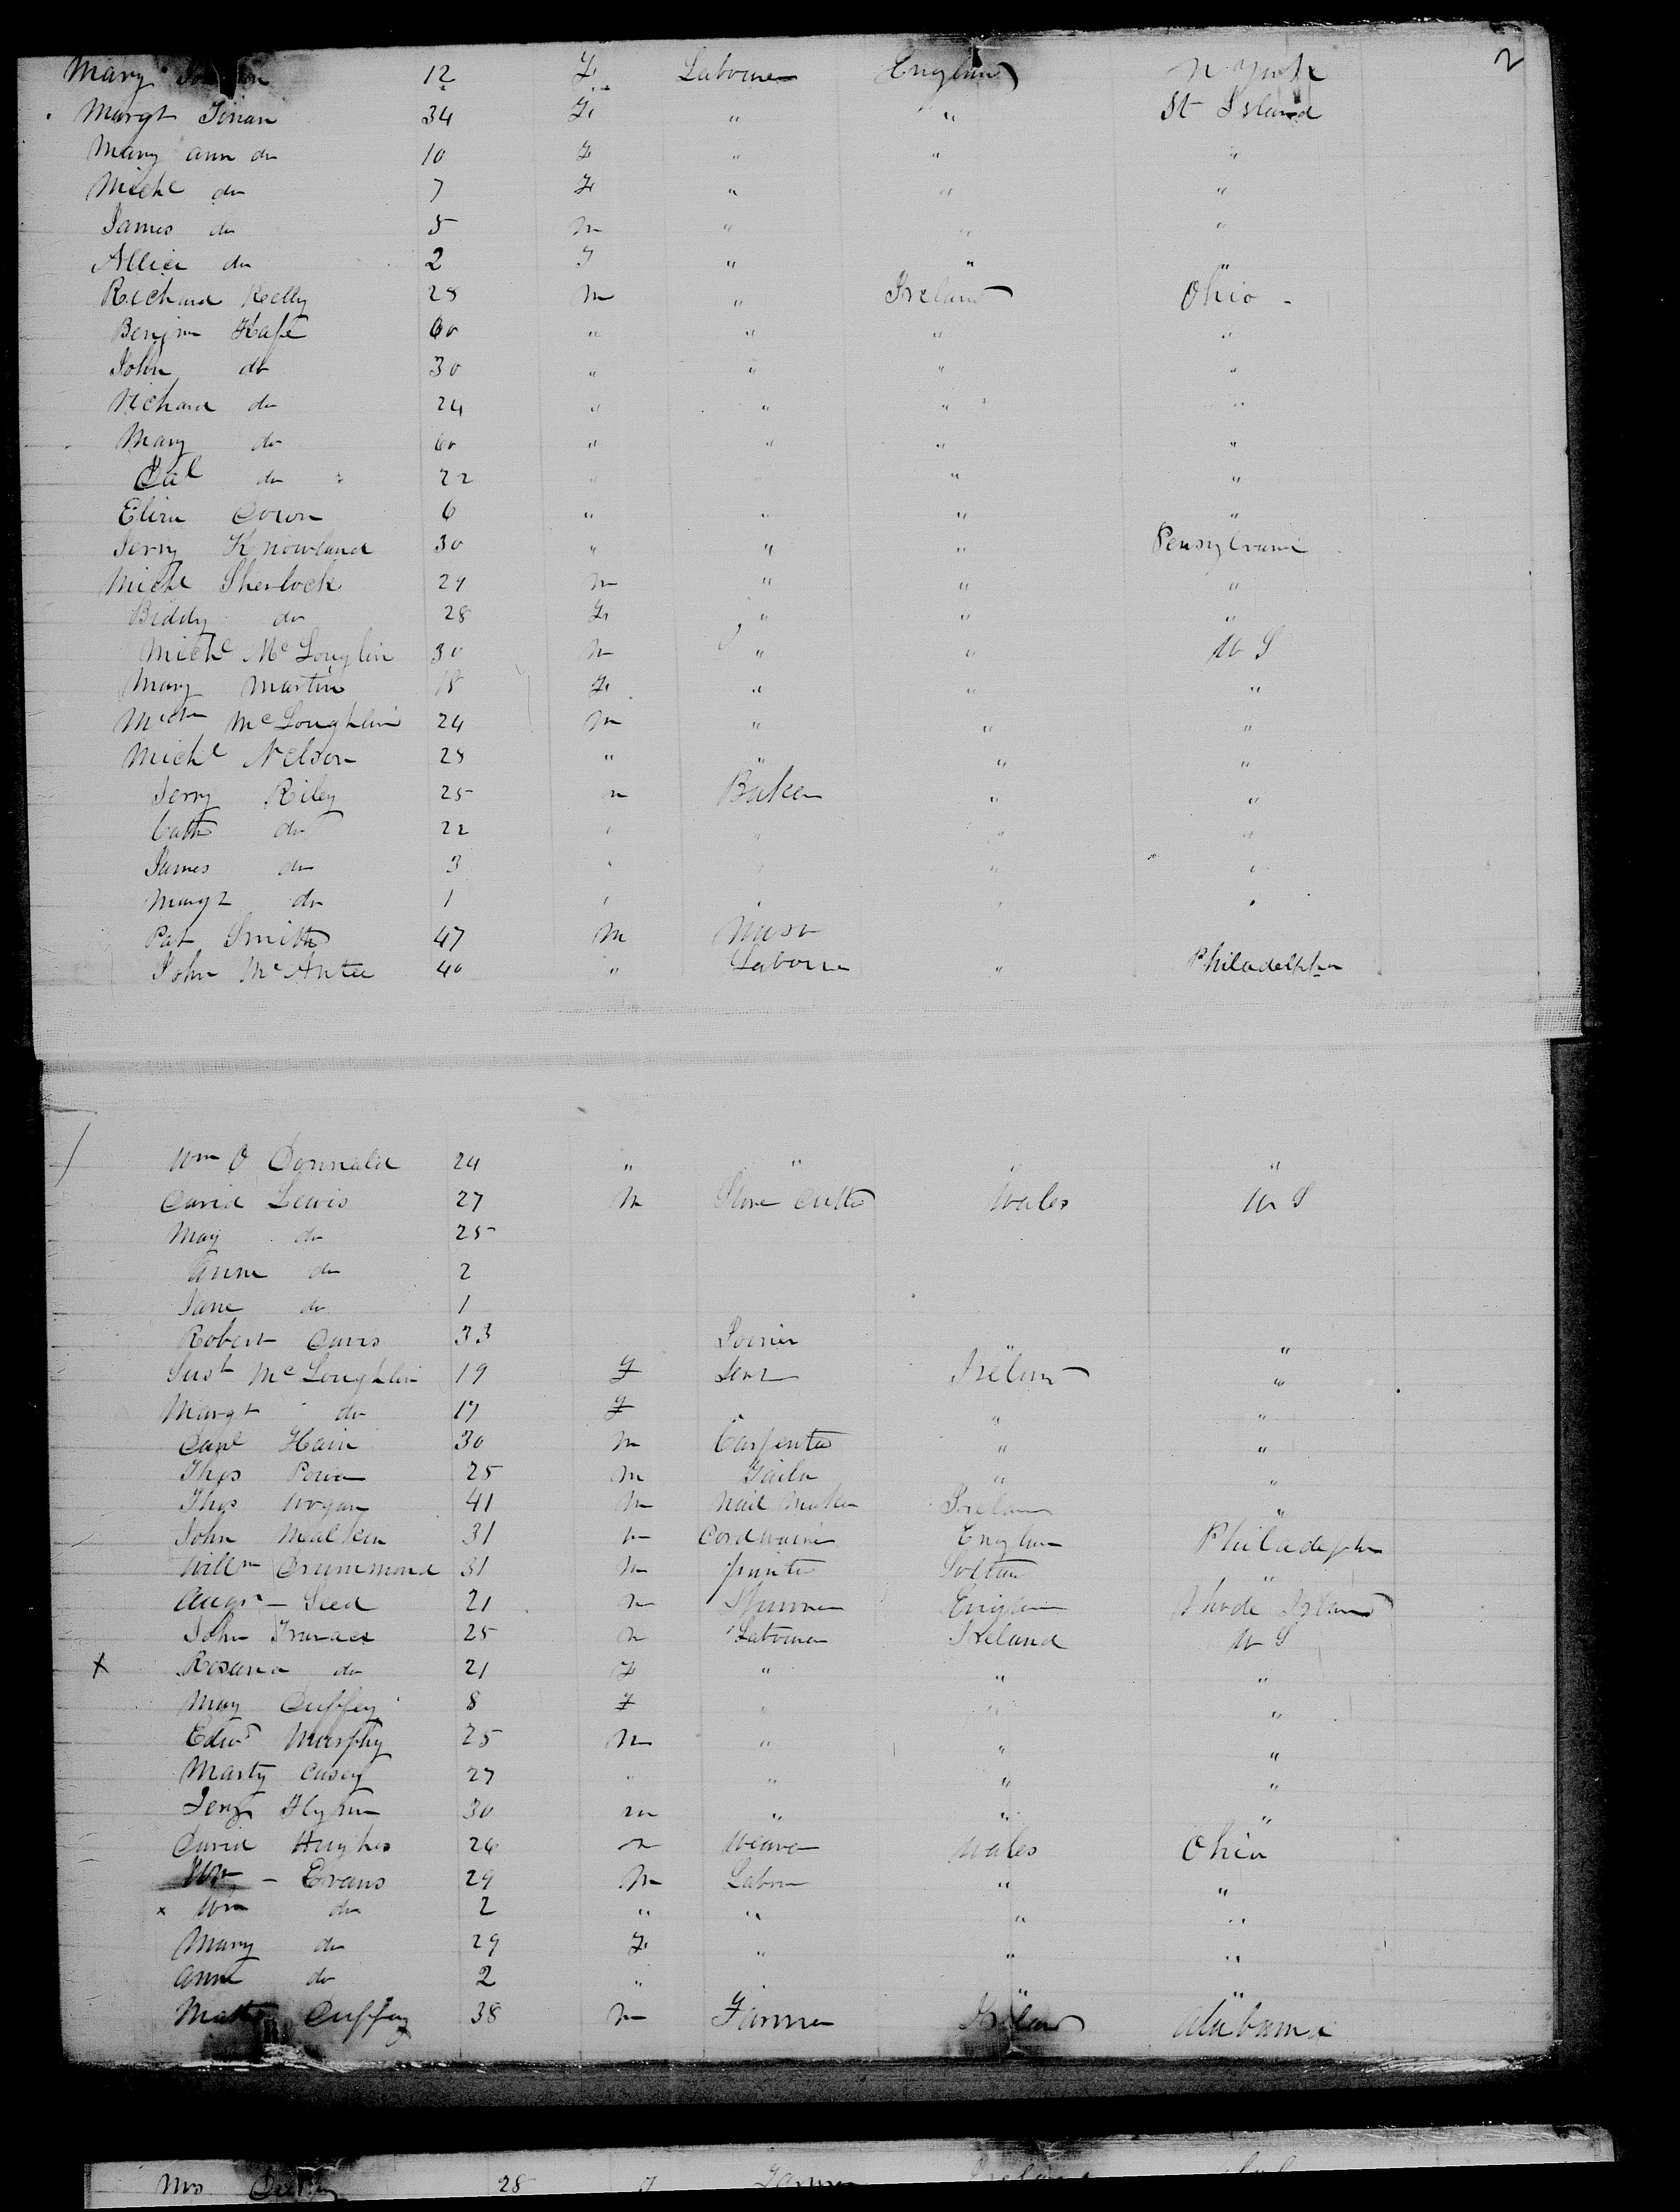 2
Mary 12 F Labourer England N York
Margt Tinan 34 F " " St Island
Mary ann do 10 F " " "
Michl do 7 F " " "
James do 5 m " " "
Allice do 2 F " " "
Richard Kelly 28 m " Ireland Ohio -
Benjm Hafe 60 " " " "
John do 30 " " " "
Richard do 24 " " " "
Mary do 60 " " " "
do 22 " " " "
Eliza 6 " " " "
Jerry Knowland 30 " " " Pensylvania
Michl Sherlock 29 m " " "
Biddy do 28 F " " "
Michl Mc Louglin 30 m " " U S
Mary Martin 18 F " " "
Mc Loughlin 24 m " " "
Michl Nelson 28 " " " "
Jerry Riley 25 m Baker " "
Cath do 22 " " " "
James do 3 " " " "
Margt do 1 " " " "
Pat Smith 47 m
John Mc Antee 40 " Labourer " Philadelphia
Wm O Donnald 24 " " " "
David Lewis 27 m Stone Cutter Wales U S
May do 25
Anne do 2
Jane do 1
Robert Davis 33 "
Mc Loughlin 19 F Servt Ireland "
Margt do 17 F " " "
Danl Hain 30 m Carpenter " "
Thos Power 25 m Tailor " "
Thos Wogan 41 m Nail Maker Ireland "
John Malkin 31 m Cordwainer England Philadelpha
Willm Drummond 31 m Scotland "
Seed 21 m Spinner England Rhode Island
John 25 m Labourer Ireland U S
x Rosana do 21 F " " "
May Duffey 8 F " " "
Edwd Murphy 25 m " " "
Marty Casey 27 " " " "
Jery 30 m " " "
David Hughes 26 m Weaver Wales Ohio
Wm - Evans 29 m Labour " "
x Wm do 2 " " " "
Mary do 29 F " " "
Anne do 2 " " "
Matt Duffey 38 m Farmer Ireland Alabama
Mrs Duffey 28 F Farmer Ireland